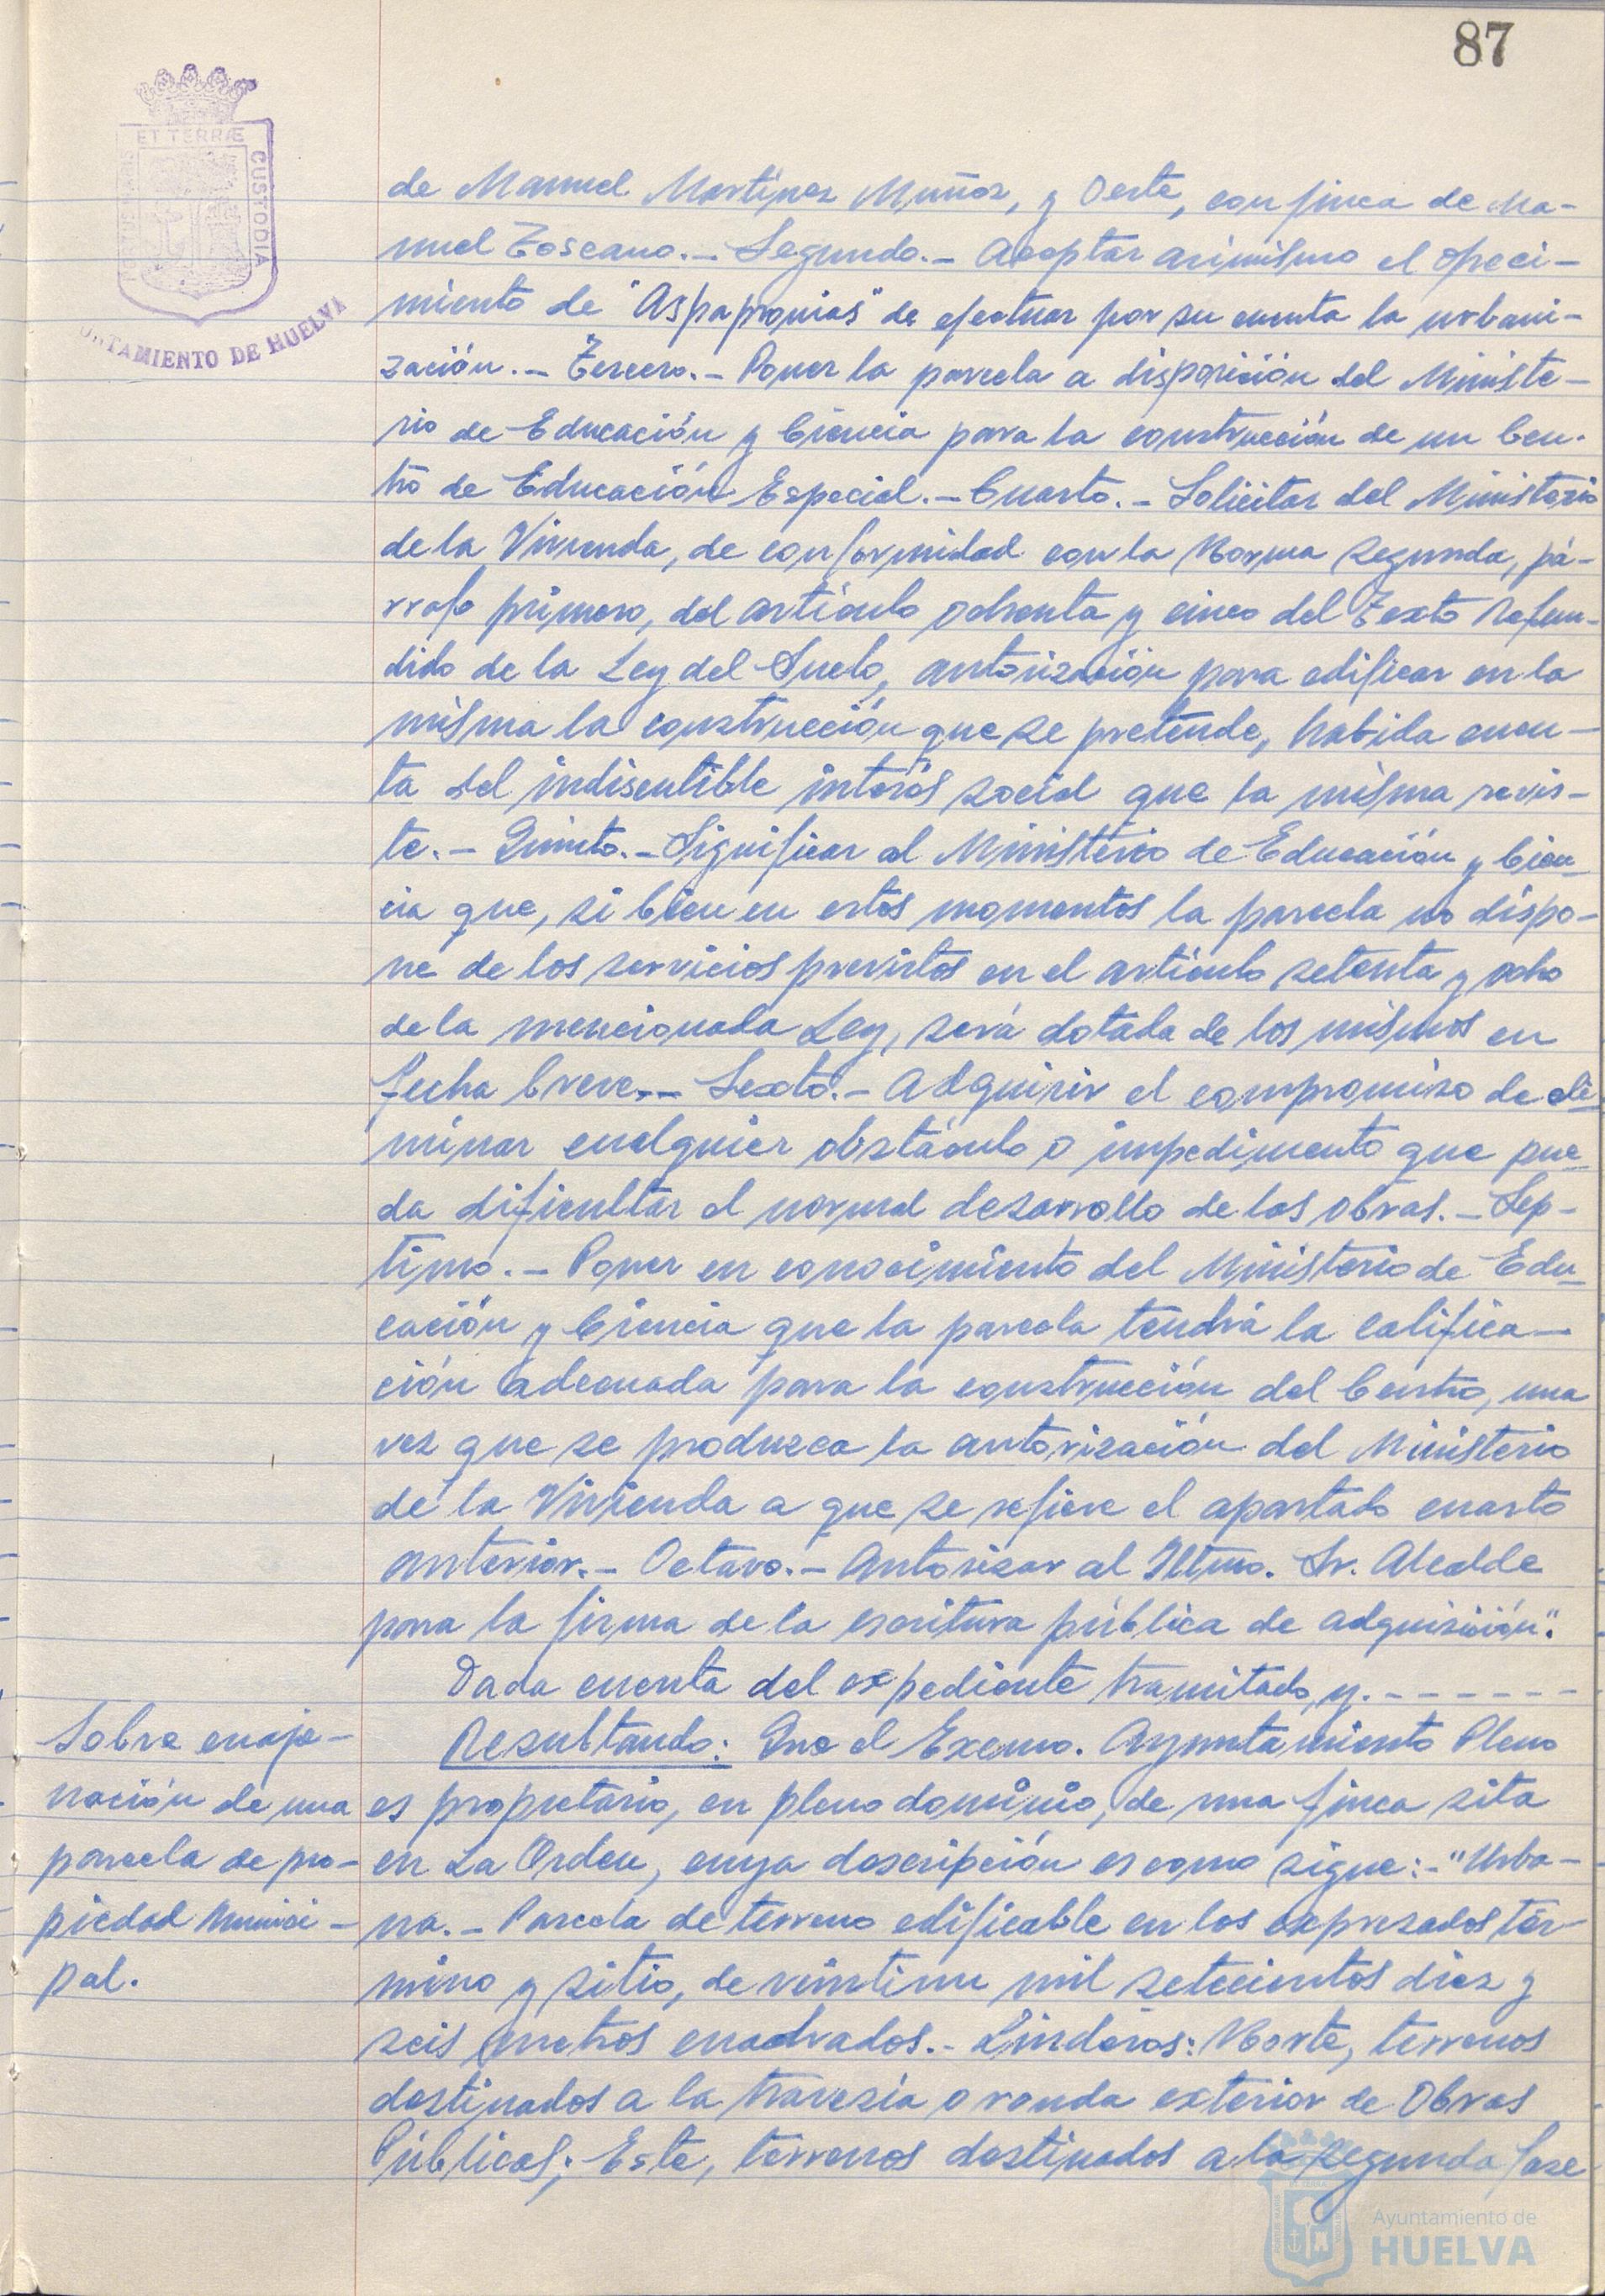 87
ET TERRÆ
PORTUS MARIS
CUSTODIA
AYUNTAMIENTO DE HUELVA
de Manuel Martínez Muñoz, y Oeste, con finca de Ma-
nuel Toscano.- Segundo.- Aceptar asimismo el ofreci-
miento de "Aspapronias" de efectuar por su cuenta la urbani-
zación.- Tercero.- Poner la parcela a disposición del Ministe-
rio de Educación y Ciencia para la construcción de un Cen-
tro de Educación Especial.- Cuarto.- Solicitar del Ministerio
de la Vivienda, de conformidad con la Norma segunda, pá-
rrafo primero, del artículo ochenta y cinco del Texto Refun-
dido de la Ley del Suelo, autorización para edificar en la
misma la construcción que se pretende, habida cuen-
ta del indiscutible interés social que la misma revis-
te.- Quinto.- Significar al Ministerio de Educación y Cien-
cia que, si bien en estos momentos la parcela no dispo-
ne de los servicios previstos en el artículo setenta y ocho
de la mencionada Ley, será dotada de los mismos en
fecha breve.- Sexto.- Adquirir el compromiso de eli-
minar cualquier obstáculo o impedimento que pue-
da dificultar el normal desarrollo de las obras.- Sép-
timo.- Poner en conocimiento del Ministerio de Edu-
cación y Ciencia que la parcela tendrá la califica-
ción adecuada para la construcción del Centro, una
vez que se produzca la autorización del Ministerio
de la Vivienda a que se refiere el apartado cuarto
anterior.- Octavo.- Autorizar al Iltmo. Sr. Alcalde
para la firma de la escritura pública de adquisición".
Dada cuenta del expediente tramitado, y.- - - - - - -
Sobre enaje-
nación de una
parcela de pro-
piedad Munici-
pal.
Resultando: Que el Excmo. Ayuntamiento Pleno
es propietario, en pleno dominio, de una finca sita
en La Orden, cuya descripción es como sigue:- "Urba-
na.- Parcela de terreno edificable en los expresados tér-
mino y sitio, de veintiun mil setecientos diez y
seis metros cuadrados.- Linderos: Norte, terrenos
destinados a la travesía o ronda exterior de Obras
Públicas; Este, terrenos destinados a la segunda fase
Ayuntamiento de
HUELVA